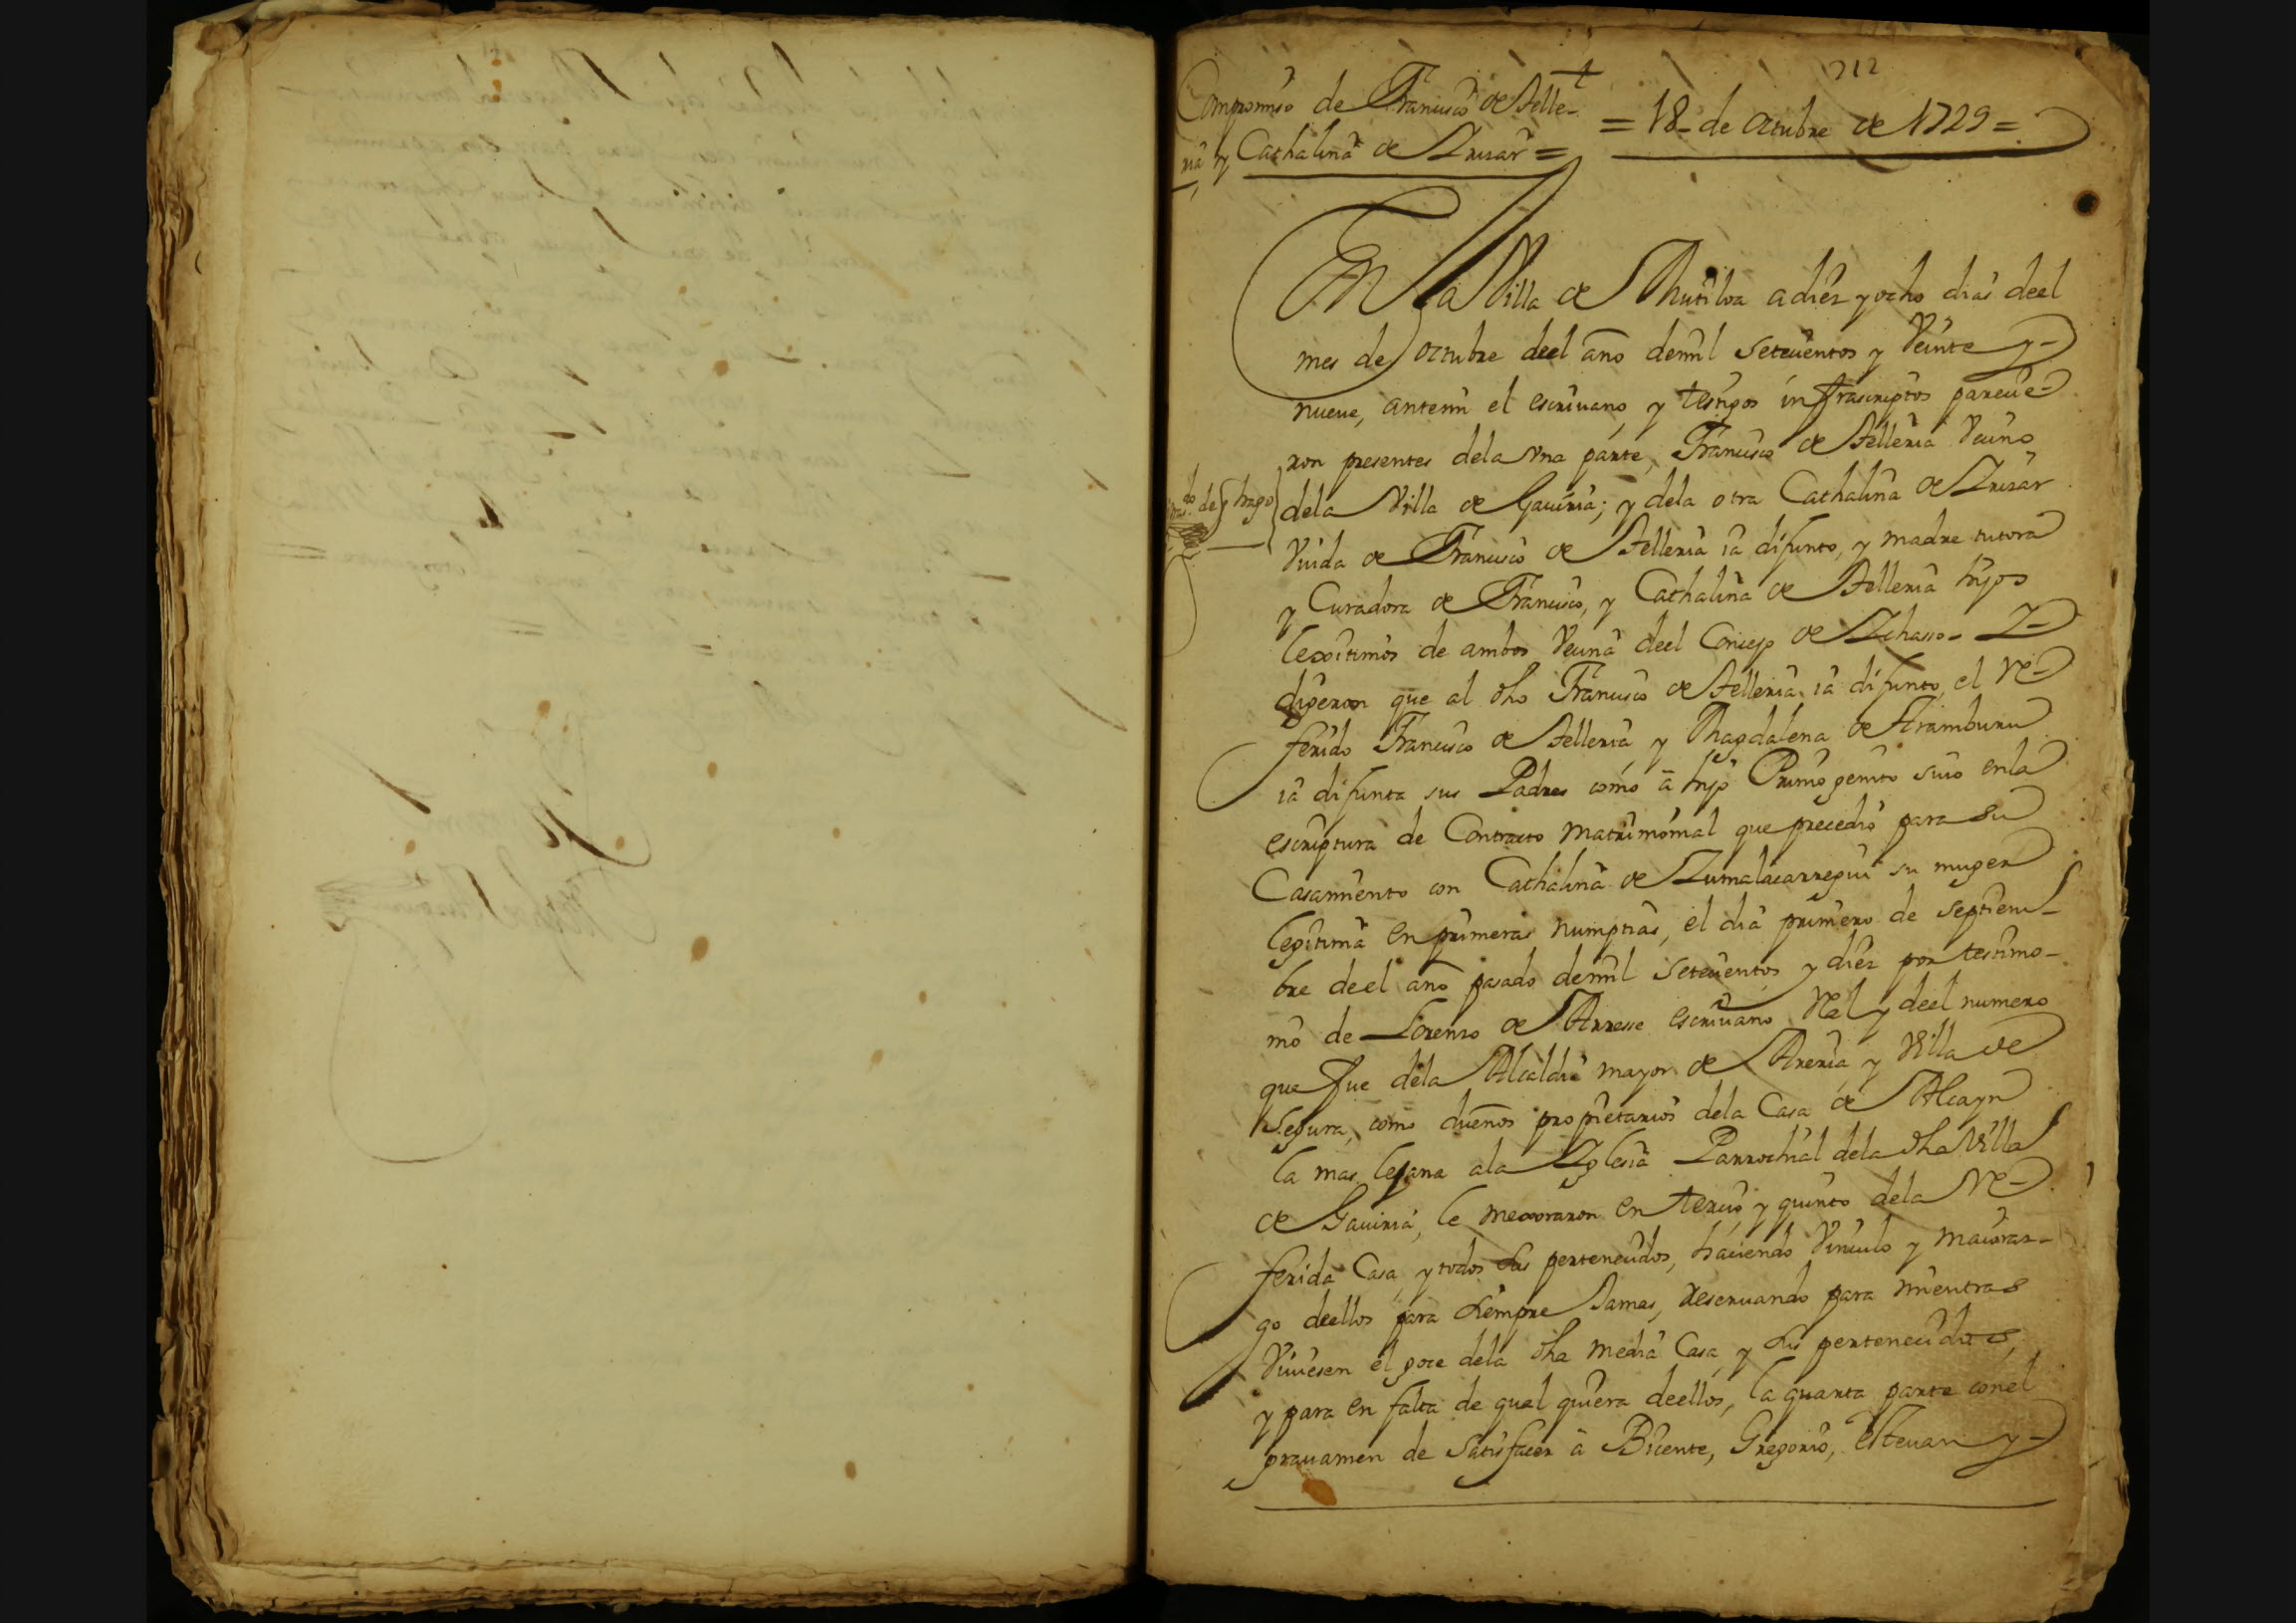 212
Compromiso de Francisco de Telle-
ria y Cathalina de Irizar =
= 18 de octubre de 1729 =
En la Villa de Mutiloa a diez y ocho dias deel
mes de octubre deel año demil setecientos y Veinte y
nueve, antemi el escrivano, y testigos infrascriptos parecie-
ron presentes dela Vna parte, Francisco de Telleria Vecino
dela Villa de Gaviria; y dela otra Cathalina de Irizar
Viuda de Francisco de Telleria ia difunto, y madre tutora
y Curadora de Francisco, y Cathalina de Telleria hijos
lexitimos de ambos Vecina deel Concejo de Ichasso - I
dixeron que al dho Francisco de Telleria ia difunto, el Re-
ferido Francisco de Telleria, y Magdalena de Aramburu
ia difunta sus Padres como â hijo Primogenito suio enla
escriptura de Contracto matrimonial que precedio para su
Casamiento con Cathalina de Zumalacarregui su muger
legitima en primeras numptias, el dia primero de septiem-
bre deel año pasado demil setecientos y diez por testimo-
nio de Lorenzo de Arrese escrivano Rl y deel numero
que fue dela Alcaldia mayor de Areria y Villa de
Segura, como dueños propietarios dela Casa de Alcayn
la mas lejana ala Iglesia Parrochial dela dha Villa
de Gaviria, le mexoraron en tercio y quinto dela Re-
ferida Casa, y todos sus pertenecidos, haciendo Vinculo y maioraz-
go deellos para siempre Jamas, reservando para mientras
Viviesen el goce dela dha media Casa, y sus pertenecidos,
y para en falta de qual quiera deellos, la quarta parte conel
gravamen de satisfacer â Bicente, Gregorio, Estevan y